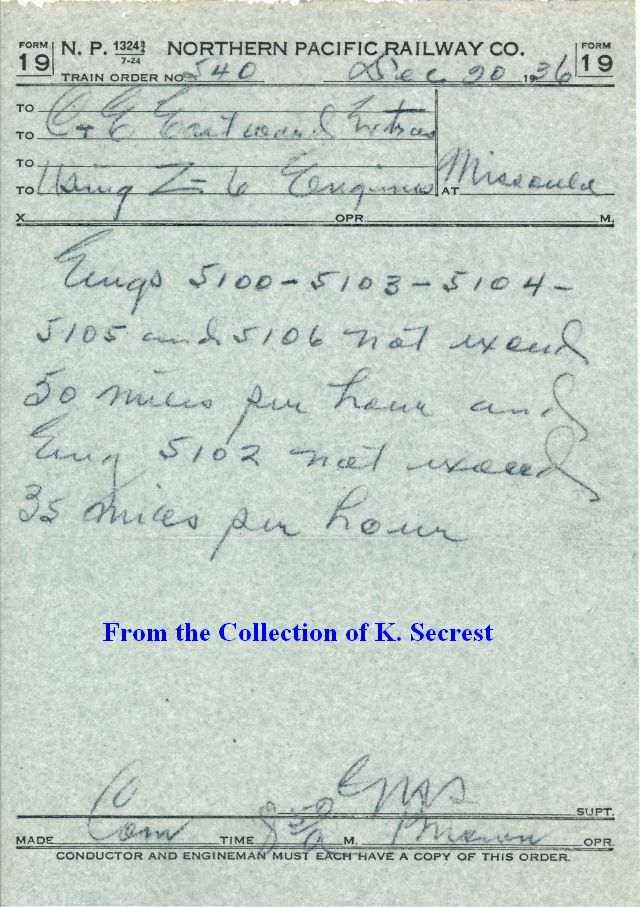 FORM 19 N. P. 1324 3/4 7-24 NORTHERN PACIFIC RAILWAY CO. FORM 19
TRAIN ORDER NO. 540 Dec 20 1936
TO C & E Eastward Extras
TO
TO
TO Using Z-6 Engines AT Missoula
X OPR. M.
Engs 5100-5103-5104-
5105 and 5106 not exceed
50 miles per hour and
Eng 5102 not exceed
35 miles per hour
From the Collection of K. Secrest
SUPT.
MADE Com TIME 850 A M. OPR.
CONDUCTOR AND ENGINEMAN MUST EACH HAVE A COPY OF THIS ORDER.